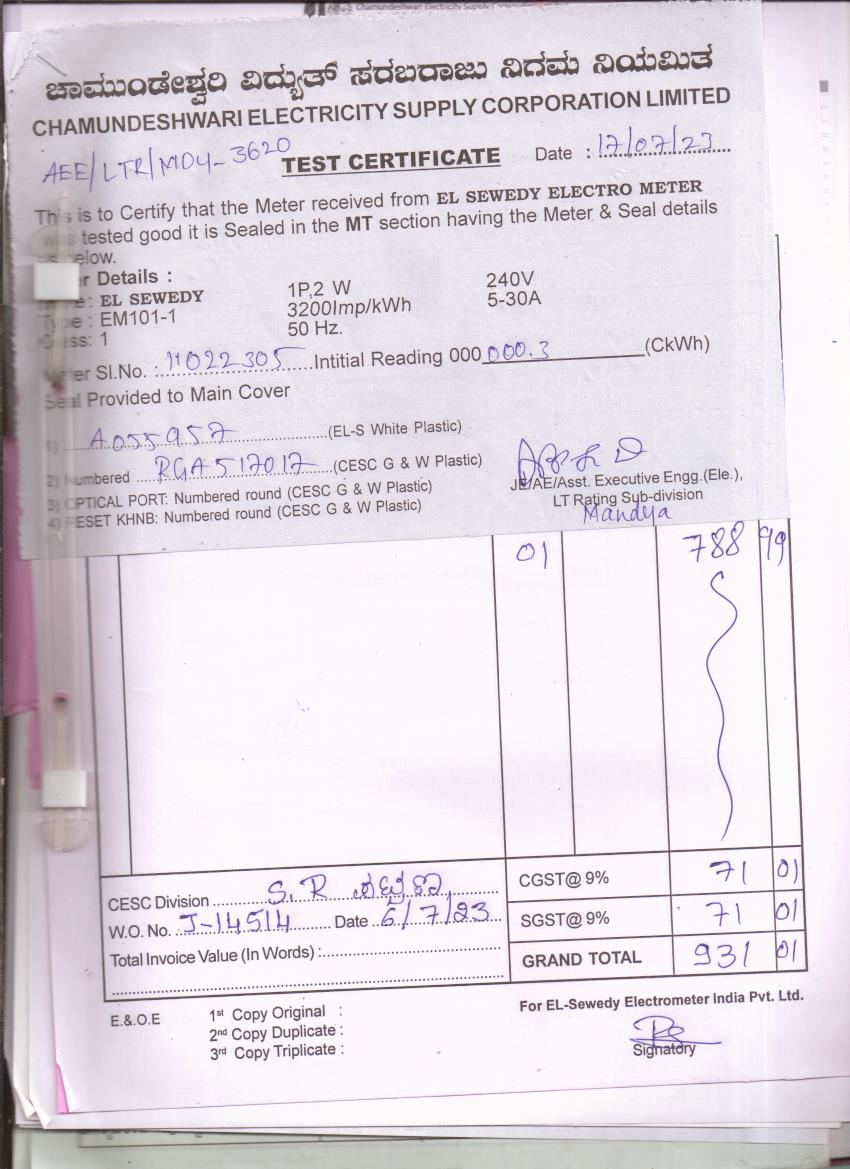 ಚಾಮುಂಡೇಶ್ವರಿ ವಿದ್ಯುತ್ ಸರಬರಾಜು ನಿಗಮ ನಿಯಮಿತ
CHAMUNDESHWARI ELECTRICITY SUPPLY CORPORATION LIMITED
AEE/LTR/MDY-3620 TEST CERTIFICATE Date : 17/07/23
This is to Certify that the Meter received from EL SEWEDY ELECTRO METER
was tested good it is Sealed in the MT section having the Meter & Seal details
as below.
Details :
: EL SEWEDY 1P,2 W 240V
Type : EM101-1 3200Imp/kWh 5-30A
Class: 1 50 Hz.
Meter Sl.No. : 11022305 Intitial Reading 000 000.3 (CkWh)
Seal Provided to Main Cover
1) A055957 (EL-S White Plastic)
2) Numbered RGA517017 (CESC G & W Plastic)
3) OPTICAL PORT: Numbered round (CESC G & W Plastic)
4) RESET KHNB: Numbered round (CESC G & W Plastic)
JE/AE/Asst. Executive Engg.(Ele.),
LT Rating Sub-division
Mandya
01 788 99
CGST@ 9% 71 01
CESC Division S.R
W.O. No. J-14514 Date 6/7/23 SGST@ 9% 71 01
Total Invoice Value (In Words) : GRAND TOTAL 931 01
E.&.O.E 1st Copy Original : For EL-Sewedy Electrometer India Pvt. Ltd.
2nd Copy Duplicate :
3rd Copy Triplicate : Signatory